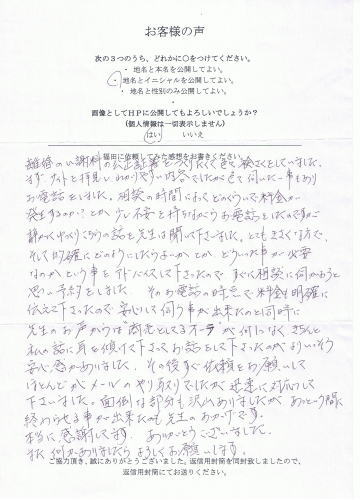 お客様の声
次の3つのうち、どれかに○をつけてください。
・ 地名と本名を公開してよい。
・ 地名とイニシャルを公開してよい。
・ 地名と性別のみ公開してよい。
画像としてHPに公開してもよろしいでしょうか？
(個人情報は一切表示しません)
はい いいえ
福田に依頼してみた感想をお書きください。
離婚の慰謝料の公正証書をつくりたくて色々検さくをしていました。
まずサイトを拝見し、わかりやすい内容でしたが色々伺いたい事もあり
お電話をしました。相談の時間によってどのくらいで料金が
発生するのか？とか少し不安を持ちながらお電話をしたのですが
静かにゆっくりこちらの話を先生は聞いて下さいました。とても気さくな方で、
そして明確にどのようにしたらよいかとか どういった事が必要
なのかという事をアドバイスして下さったので すぐに相談に伺おうと
思い予約をしました。そのお電話の時点で料金も明確に
伝えて下さったので 安心して伺う事が出来たのと同時に
先生のお声からは 商売としてるオーラが何にもなく きちんと
私の話に耳を傾けて下さってお話をして下さったのがよりいっそう
安心感がありました。その後すぐ依頼をお願いして
ほとんどがメールのやり取りでしたが 迅速に対応して
下さいました。面倒な部分も沢山ありましたが あっという間に
終わらせる事が出来たのも先生のおかげです。
本当に感謝してます。ありがとうございました。
また何かありましたらよろしくお願いします。
ご協力頂き、誠にありがとうございました。返信用封筒を同封致しましたので、
返信用封筒にてお送りください。